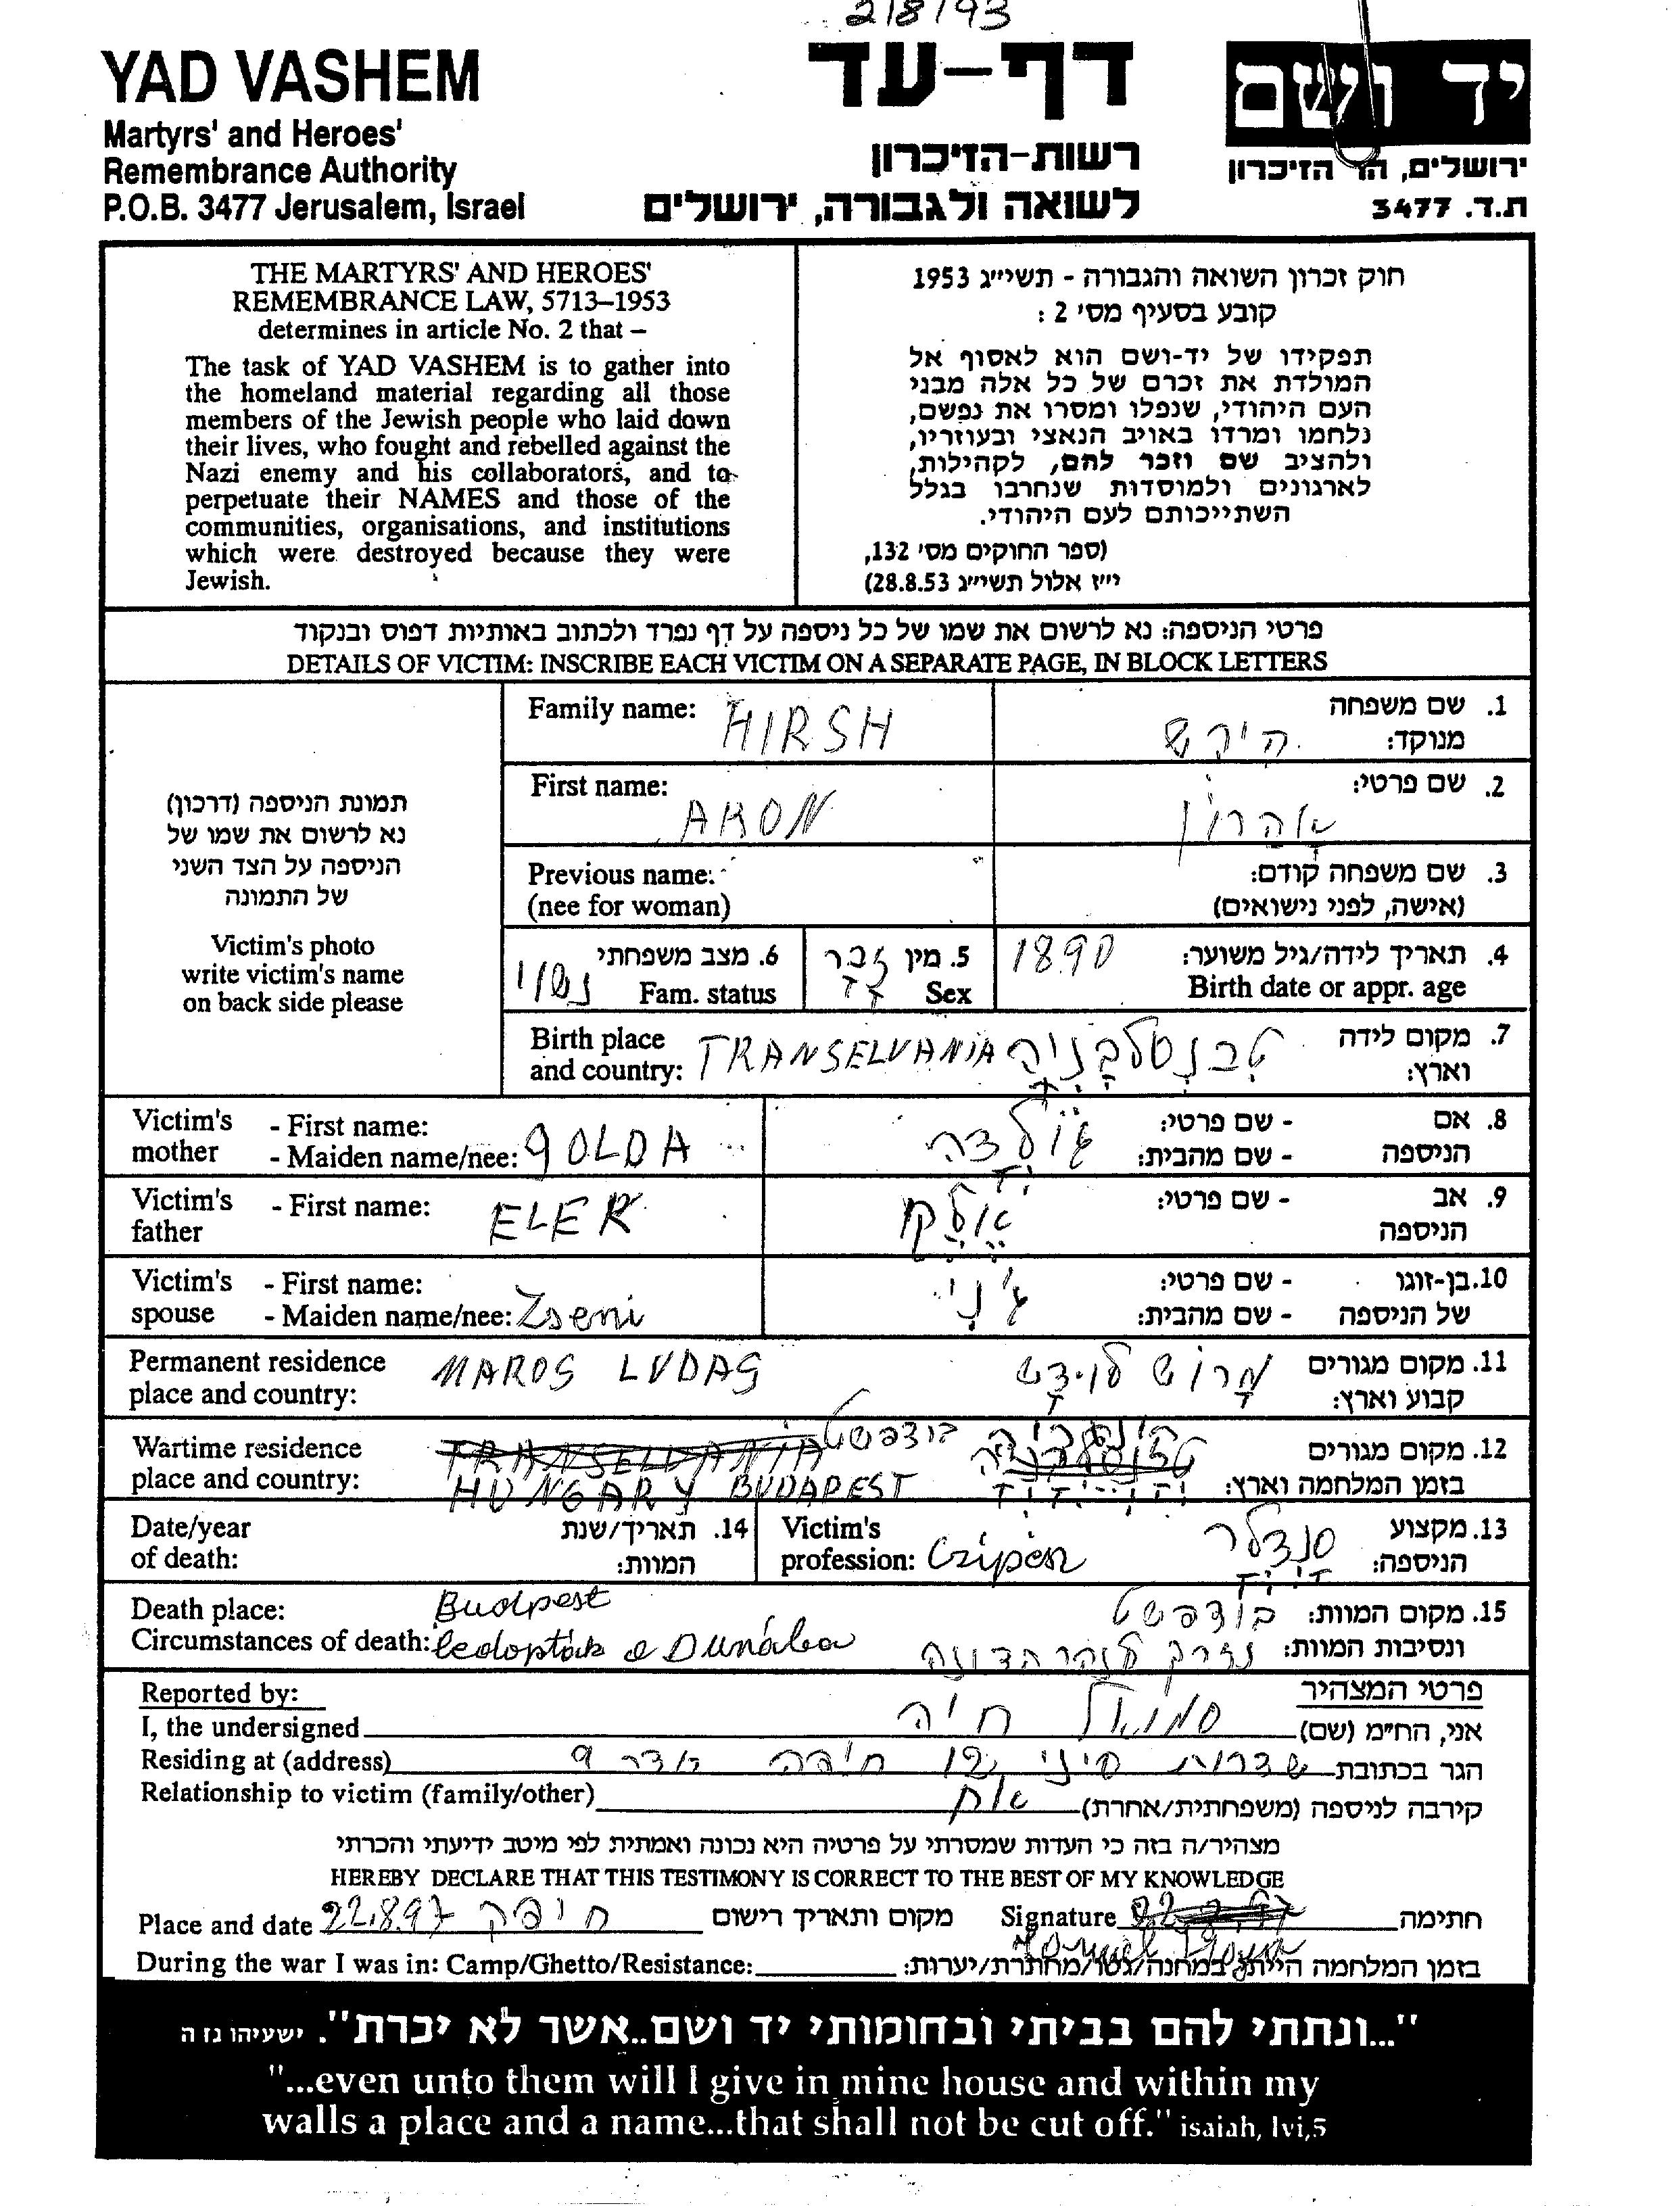 2/8/93
YAD VASHEM
Martyrs' and Heroes'
Remembrance Authority
P.O.B. 3477 Jerusalem, Israel
דף-עד
רשות-הזיכרון
לשואה ולגבורה, ירושלים
יד ושם
ירושלים, הר הזיכרון
ת.ד. 3477
THE MARTYRS' AND HEROES'
REMEMBRANCE LAW, 5713–1953
determines in article No. 2 that –
The task of YAD VASHEM is to gather into
the homeland material regarding all those
members of the Jewish people who laid down
their lives, who fought and rebelled against the
Nazi enemy and his collaborators, and to
perpetuate their NAMES and those of the
communities, organisations, and institutions
which were destroyed because they were
Jewish.
חוק זכרון השואה והגבורה - תשי״ג 1953
קובע בסעיף מס' 2 :
תפקידו של יד-ושם הוא לאסוף אל
המולדת את זכרם של כל אלה מבני
העם היהודי, שנפלו ומסרו את נפשם,
נלחמו ומרדו באויב הנאצי ובעוזריו,
ולהציב שם וזכר להם, לקהילות,
לארגונים ולמוסדות שנחרבו בגלל
השתייכותם לעם היהודי.
(ספר החוקים מס' 132,
י״ז אלול תשי״ג 28.8.53)
פרטי הניספה: נא לרשום את שמו של כל ניספה על דף נפרד ולכתוב באותיות דפוס ובנקוד
DETAILS OF VICTIM: INSCRIBE EACH VICTIM ON A SEPARATE PAGE, IN BLOCK LETTERS
תמונת הניספה (דרכון)
נא לרשום את שמו של
הניספה על הצד השני
של התמונה
Victim's photo
write victim's name
on back side please
Family name: HIRSH
1. שם משפחה
מנוקד: הירש
First name: ARON
2. שם פרטי: אהרון
Previous name:
(nee for woman)
3. שם משפחה קודם:
(אישה, לפני נישואים)
4. תאריך לידה/גיל משוער: 1890
Birth date or appr. age
5. מין זכר
Sex
6. מצב משפחתי נשוי
Fam. status
Birth place
and country: TRANSELVANIA
7. מקום לידה
וארץ: טרנסלבניה
Victim's mother - First name:
- Maiden name/nee: GOLDA
8. אם הניספה - שם פרטי: גולדה
- שם מהבית:
Victim's father - First name: ELEK
9. אב הניספה - שם פרטי: אלק
Victim's spouse - First name:
- Maiden name/nee: Zseni
10. בן-זוגו של הניספה - שם פרטי: ז'ני
- שם מהבית:
Permanent residence
place and country: MAROS LUDAS
11. מקום מגורים
קבוע וארץ: מרוש לודש
Wartime residence
place and country: TRANSELVANIA
HUNGARY BUDAPEST
12. מקום מגורים
בזמן המלחמה וארץ: הונגריה בודפשט
Date/year
of death:
14. תאריך/שנת
המוות:
Victim's
profession: Czipész
13. מקצוע
הניספה: סנדלר
Death place: Budpest
Circumstances of death: ledoptók a Dunába
15. מקום המוות: בודפשט
ונסיבות המוות: נזרק לנהר הדונה
Reported by:
פרטי המצהיר
I, the undersigned
אני, הח״מ (שם) סמואל חיה
Residing at (address)
הגר בכתובת שדרות סיני 12 חיפה חדר 9
Relationship to victim (family/other)
קירבה לניספה (משפחתית/אחרת)
מצהיר/ה בזה כי העדות שמסרתי על פרטיה היא נכונה ואמתית לפי מיטב ידיעתי והכרתי
HEREBY DECLARE THAT THIS TESTIMONY IS CORRECT TO THE BEST OF MY KNOWLEDGE
Place and date 22.8.97 חיפה מקום ותאריך רישום
Signature חתימה
During the war I was in: Camp/Ghetto/Resistance:
בזמן המלחמה הייתי במחנה/גטו/מחתרת/יערות:
"...ונתתי להם בביתי ובחומותי יד ושם..אשר לא יכרת". ישעיהו נז ה
"...even unto them will I give in mine house and within my
walls a place and a name...that shall not be cut off." isaiah, lvi,5